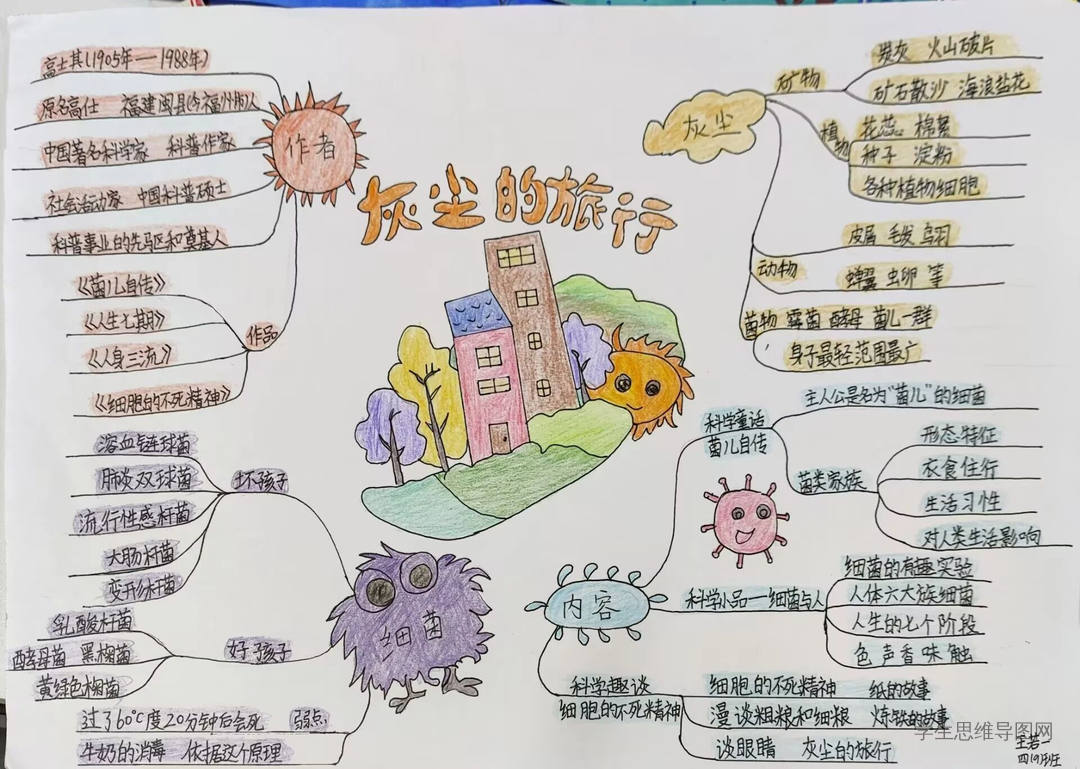 灰尘的旅行
作者
高士其(1905年—1988年)
原名高仕 福建闽县(今福州市)人
中国著名科学家 科普作家
社会活动家 中国科普硕士
科普事业的先马区和奠基人
作品
《菌儿自传》
《人生七期》
《人身三流》
《细胞的不死精神》
灰尘
矿物
炭灰 火山破片
矿石散沙 海浪盐花
植物
花蕊 棉絮
种子 淀粉
各种植物细胞
动物
皮屑 毛发 鸟羽
蝉翼 虫卵 等
菌物 霉菌 酵母 菌儿一群
身子最轻范围最广
细菌
坏孩子
溶血链球菌
肺炎双球菌
流行性感杆菌
大肠杆菌
变形杆菌
好孩子
乳酸杆菌
酵母菌 黑桐菌
黄绿色桐菌
弱点
过了60℃度20分钟后会死
牛奶的消毒 依据这个原理
内容
科学童话
菌儿自传
主人公是名为"菌儿"的细菌
菌类家族
形态特征
衣食住行
生活习性
对人类生活影响
科学小品—细菌与人
细菌的有趣实验
人体六大族细菌
人生的七个阶段
色声香味触
科学趣谈
细胞的不死精神
细胞的不死精神 纸的故事
漫谈粗粮和细粮 炼铁的故事
谈眼睛 灰尘的旅行
学生思维导图网
王若一
四(9)班